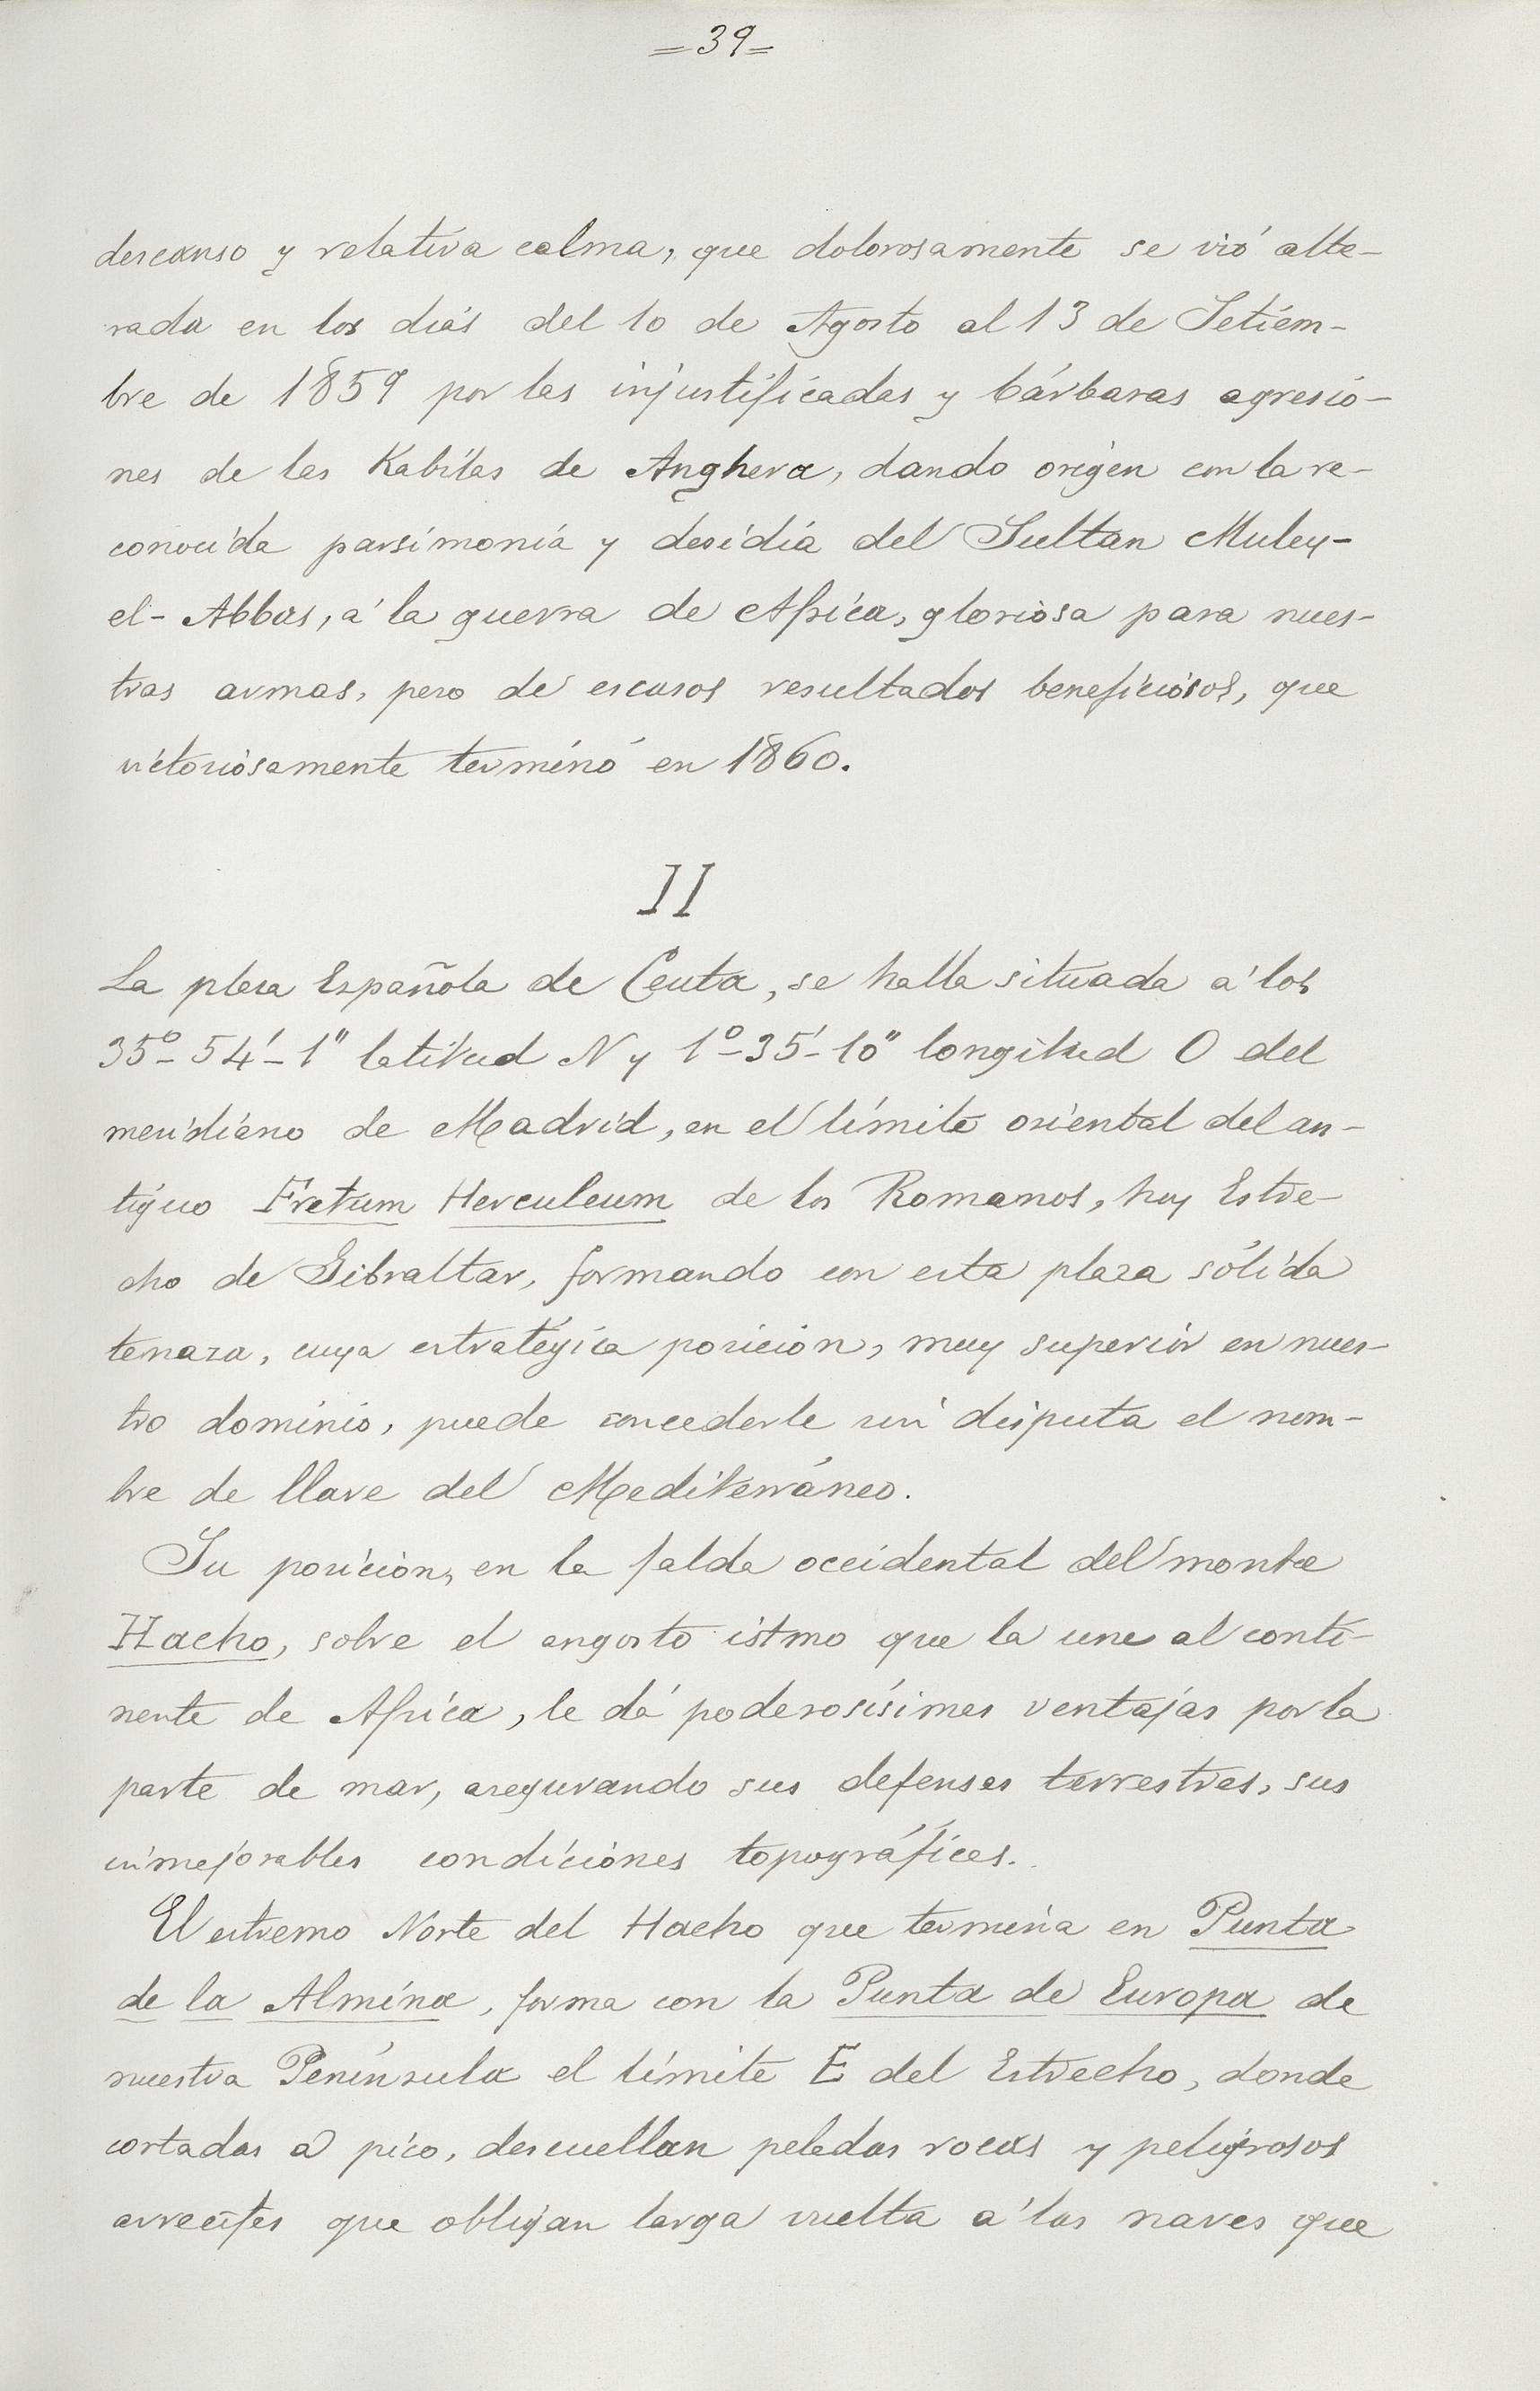 =39=
descanso y relativa calma, que dolorosamente se vió alte-
rada en los dias del 10 de Agosto al 13 de Setiem-
bre de 1859 por las injustificadas y bárbaras agresio-
nes de las Kabilas de Anghera, dando origen con la re-
conocida parsimonia y desidia del Sultan Muley-
el-Abbas, á la guerra de Africa, gloriosa para nues-
tras armas, pero de escasos resultados beneficiosos, que
victoriosamente terminó en 1860.
II
La plaza Española de Ceuta, se halla situada á los
35º-54'-1" latitud N y 1º-35'-10" longitud O del
meridiano de Madrid, en el límite oriental del an-
tiguo Fretum Herculeum de los Romanos, hoy Estre-
cho de Gibraltar, formando con esta plaza sólida
tenaza, cuya estratégica posición, muy superior en nues-
tro dominio, puede concederle sin disputa el nom-
bre de llave del Mediterráneo.
Su posición, en la falda occidental del monte
Hacho, sobre el angosto istmo que la une al conti-
nente de Africa, le dá poderosísimas ventajas por la
parte de mar, asegurando sus defensas terrestres, sus
inmejorables condiciones topográficas.
El estremo Norte del Hacho que termina en Punta
de la Almina, forma con la Punta de Europa de
nuestra Península el límite E del Estrecho, donde
cortadas á pico, descuellan peladas rocas y peligrosos
arrecifes que obligan larga vuelta á las naves que